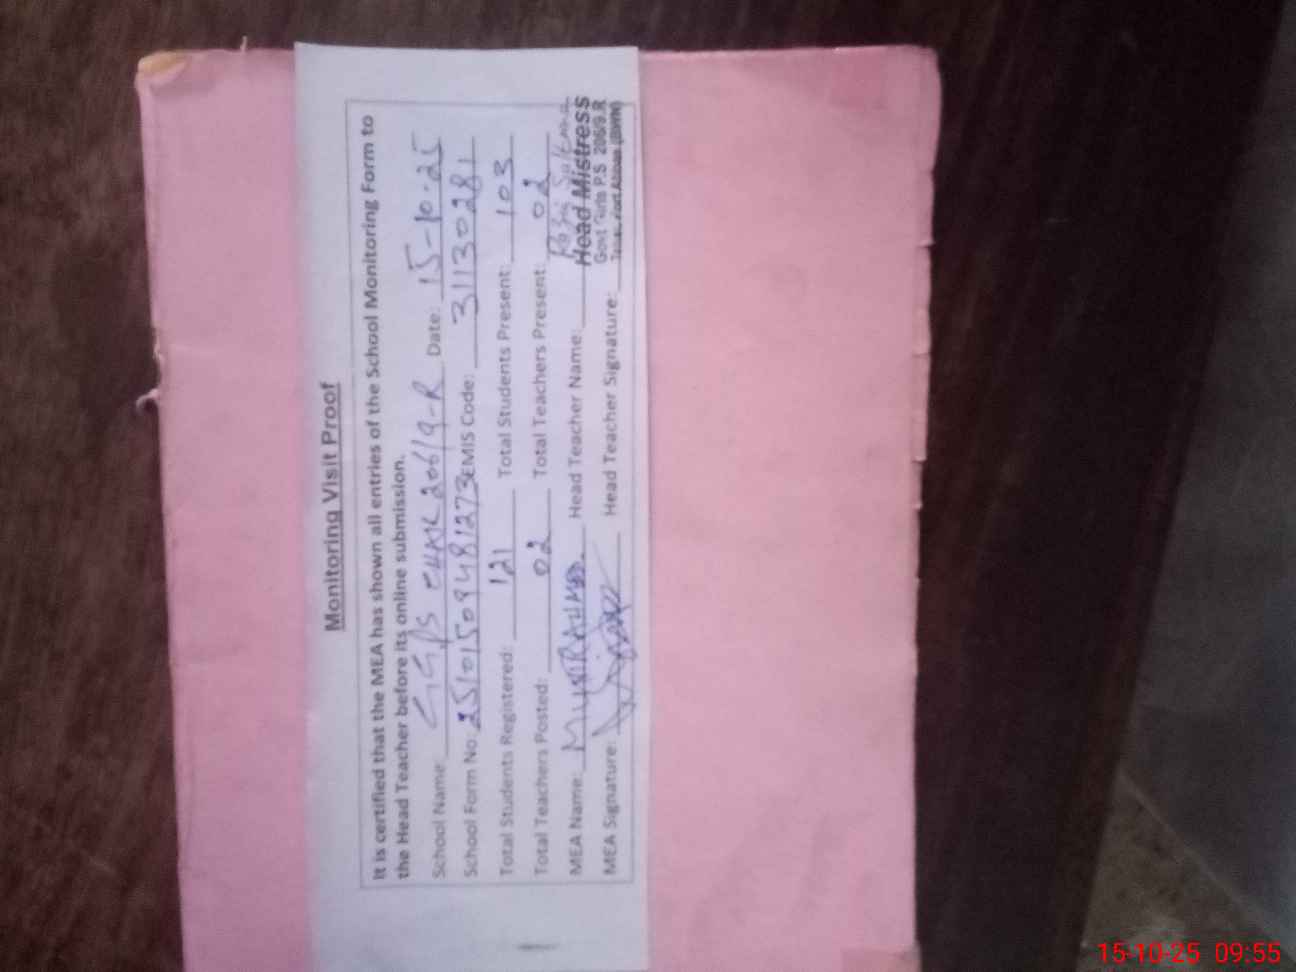 Monitoring Visit Proof
It is certified that the MEA has shown all entries of the School Monitoring Form to
the Head Teacher before its online submission.
School Name: GGPS CHAK 206/9-R Date: 15-10-25
School Form No: 25101509481273 EMIS Code: 31130281
Total Students Registered: 121 Total Students Present: 103
Total Teachers Posted: 02 Total Teachers Present: 02
MEA Name: MUNIR AHMED Head Teacher Name: Sultana
MEA Signature: Head Teacher Signature:
Head Mistress
Govt Girls P.S 206/9.R
Fort Abbas (BWN)
15-10-25 09:55